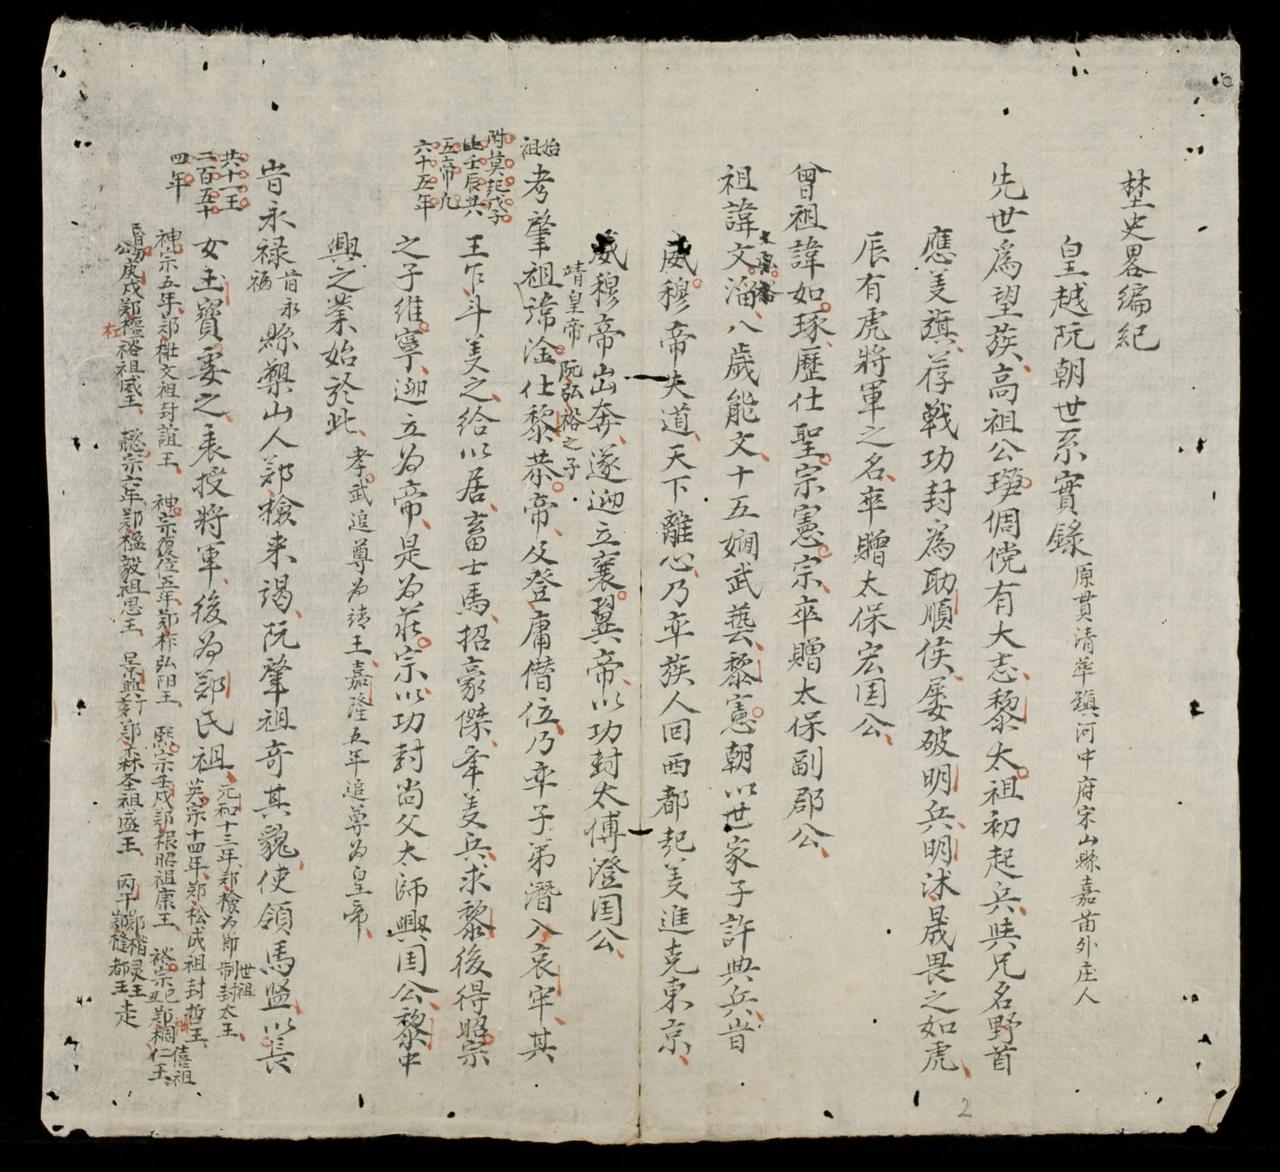 埜史畧編紀
皇越阮朝世系實錄 原貫清華鎮河中府宋山縣嘉苗外庄人
先世爲望族、高祖公 倜儻有大志、黎太祖初起兵、與兄名野首
應義旗、荐戰功封爲助順侯、屡破明兵、明沐晟畏之如虎、
辰有虎將軍之名、卒贈太保宏国公、
曾祖諱如琢、歷仕聖宗憲宗、卒贈太保副郡公、
祖諱文溜、八歲能文、十五嫺武藝、黎憲朝以世家子許典兵、旹
威穆帝失道、天下離心、乃率族人回西都起義進克東京、
威穆帝出奔、遂迎立襄翼帝、以功封太傅澄国公、
靖皇帝 阮弘裕之子
始祖
考肇祖諱淦仕黎恭帝、及登庸僭位乃率子弟潜入哀牢、其
附莫起戊子
壬辰共
五帝凡
六十五年
王乍斗美之、給以居、畜士馬、招豪傑、率義兵、求黎後得昭宗
之子維寧、迎立为帝、是为莊宗、以功封尚父太師興囯公、黎中
興之業始於此、 孝武追尊为靖王、嘉隆五年追尊为皇帝、
旹永禄 昔永福 縣槊山人鄭檢来謁、阮肇祖奇其貌、使領馬監、以長
共十一王
二百五十
四年
女玉寶妻之、表授將軍、後为鄭氏祖、 元和十三年、鄭檢为 制封太王、 世祖
英宗十四年、鄭松成祖封哲王、
神宗五年、鄭 文祖封誼王、 神宗復位五年、鄭柞弘阳王、 熙宗壬戌鄭根昭祖康王、 裕宗 鄭棡仁王、 僖祖
公庚戌鄭 裕祖威王、 懿宗六年鄭楹毅祖恩王、 景興 鄭森圣祖盛王、 丙午鄭楷灵王 鄭槰都王走